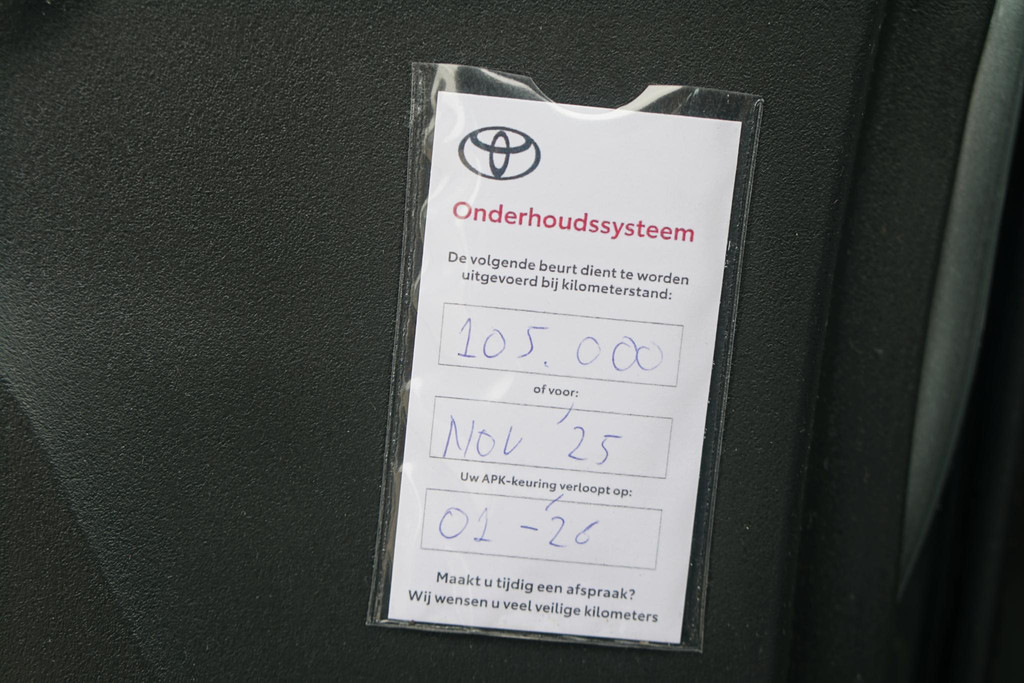 Onderhoudssysteem
De volgende beurt dient te worden
uitgevoerd bij kilometerstand:
105.000
of voor:
NOV '25
Uw APK-keuring verloopt op:
01-'26
Maakt u tijdig een afspraak?
Wij wensen u veel veilige kilometers